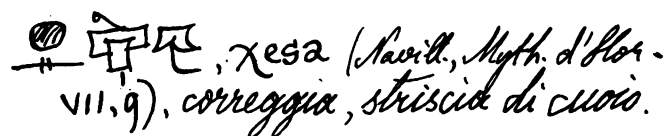 , χesa (Navill., Myth. d'Hor-
VII, 9), correggia, striscia di cuoio.